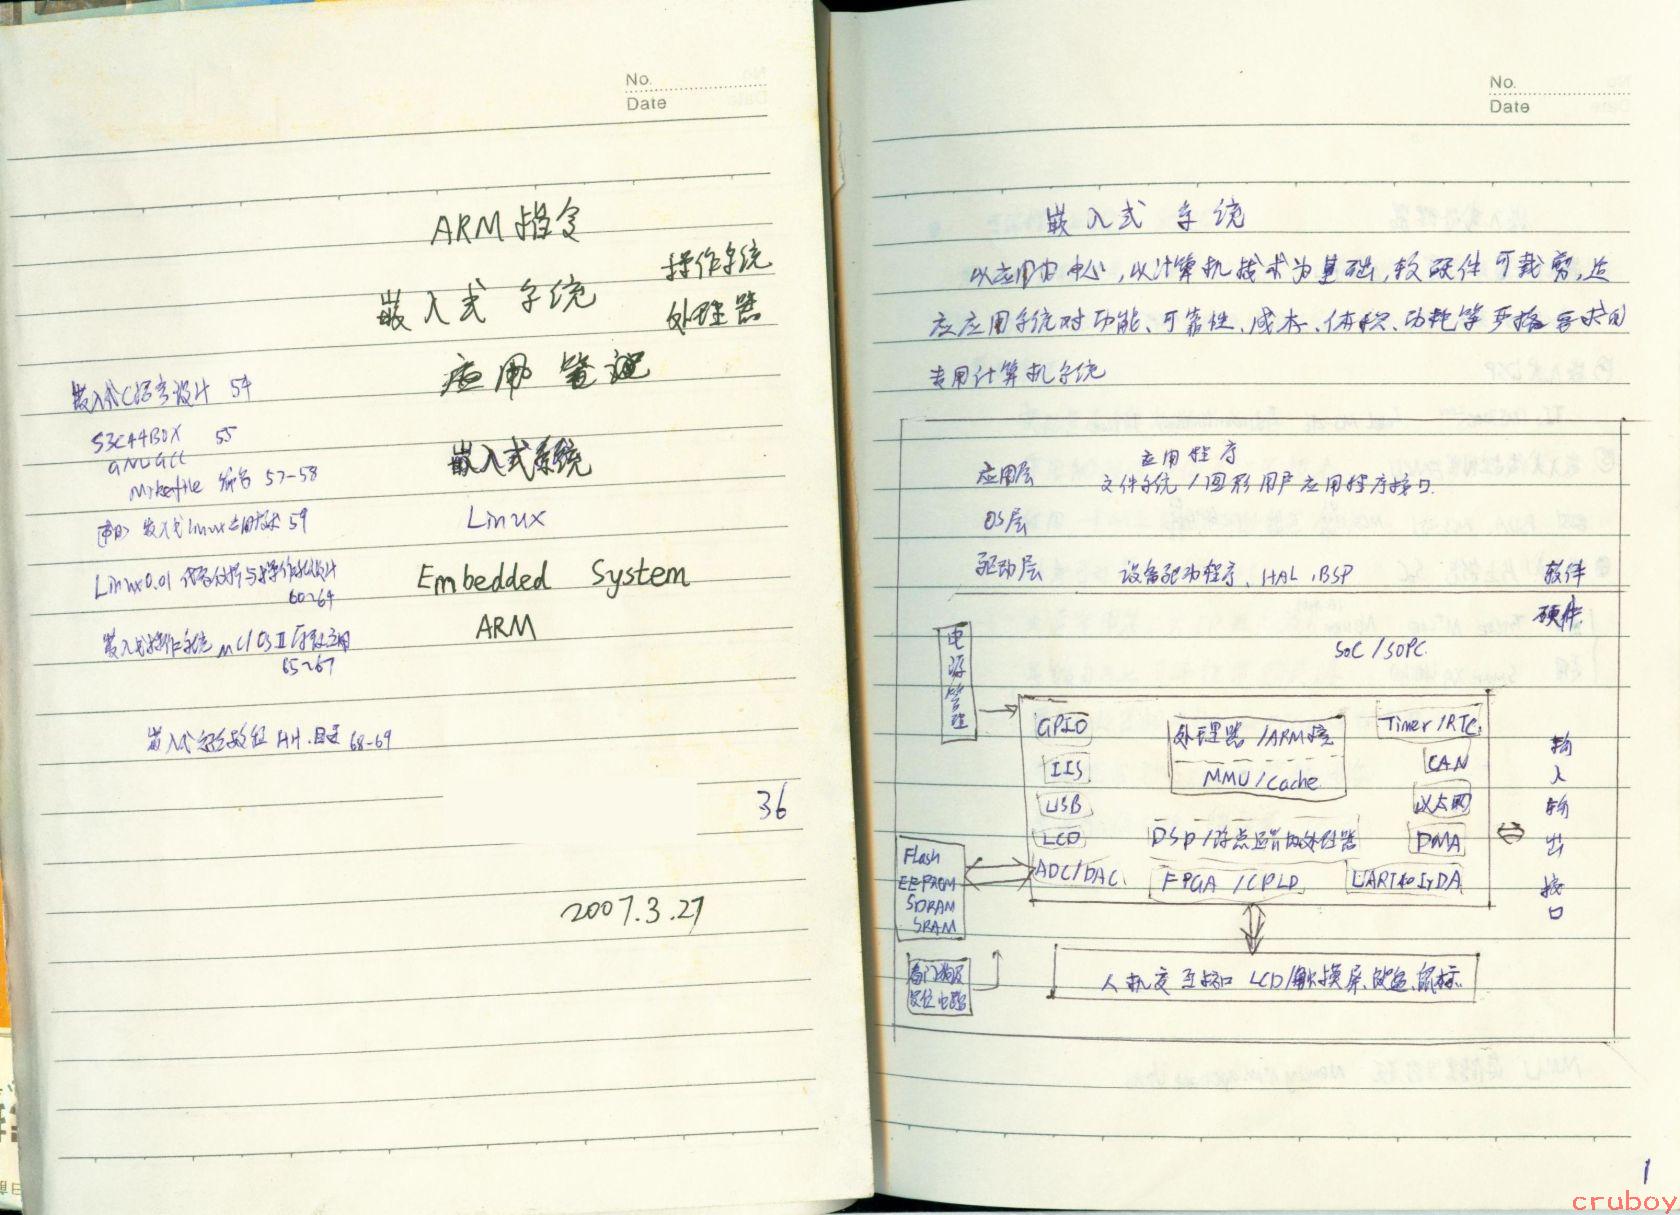 No.
Date
ARM指令
操作系统
嵌入式 系统
处理器
应用 管理
嵌入式C程序设计 54
S3C44B0X 55
GNU GCC
嵌入式系统
Makefile 命令 57-58
Linux
嵌入式Linux应用技术 59
Linux0.01 代码分析与操作系统设计
60~64
Embedded System
ARM
嵌入式操作系统 μC/OS II 应用
65~67
嵌入式 68-69
36
2007.3.27
No.
Date
嵌入式 系统
以应用为中心,以计算机技术为基础,软硬件可裁剪,适
应应用系统对功能、可靠性、成本、体积、功耗等严格要求的
专用计算机系统
应用层 应用程序
文件系统/图形用户应用程序接口
OS层
驱动层 设备驱动程序、HAL、BSP 软件
硬件
SoC/SOPC
电源管理
GPIO
处理器/ARM核
Timer/RTC
IIS
MMU/Cache
CAN
USB
以太网
LCD
DSP/浮点运算协处理器
DMA
ADC/DAC
FPGA/CPLD
UART和IrDA
输入输出接口
Flash
EEPROM
SDRAM
SRAM
看门狗及
复位电路
人机交互接口 LCD/触摸屏、键盘、鼠标
1
cruboy